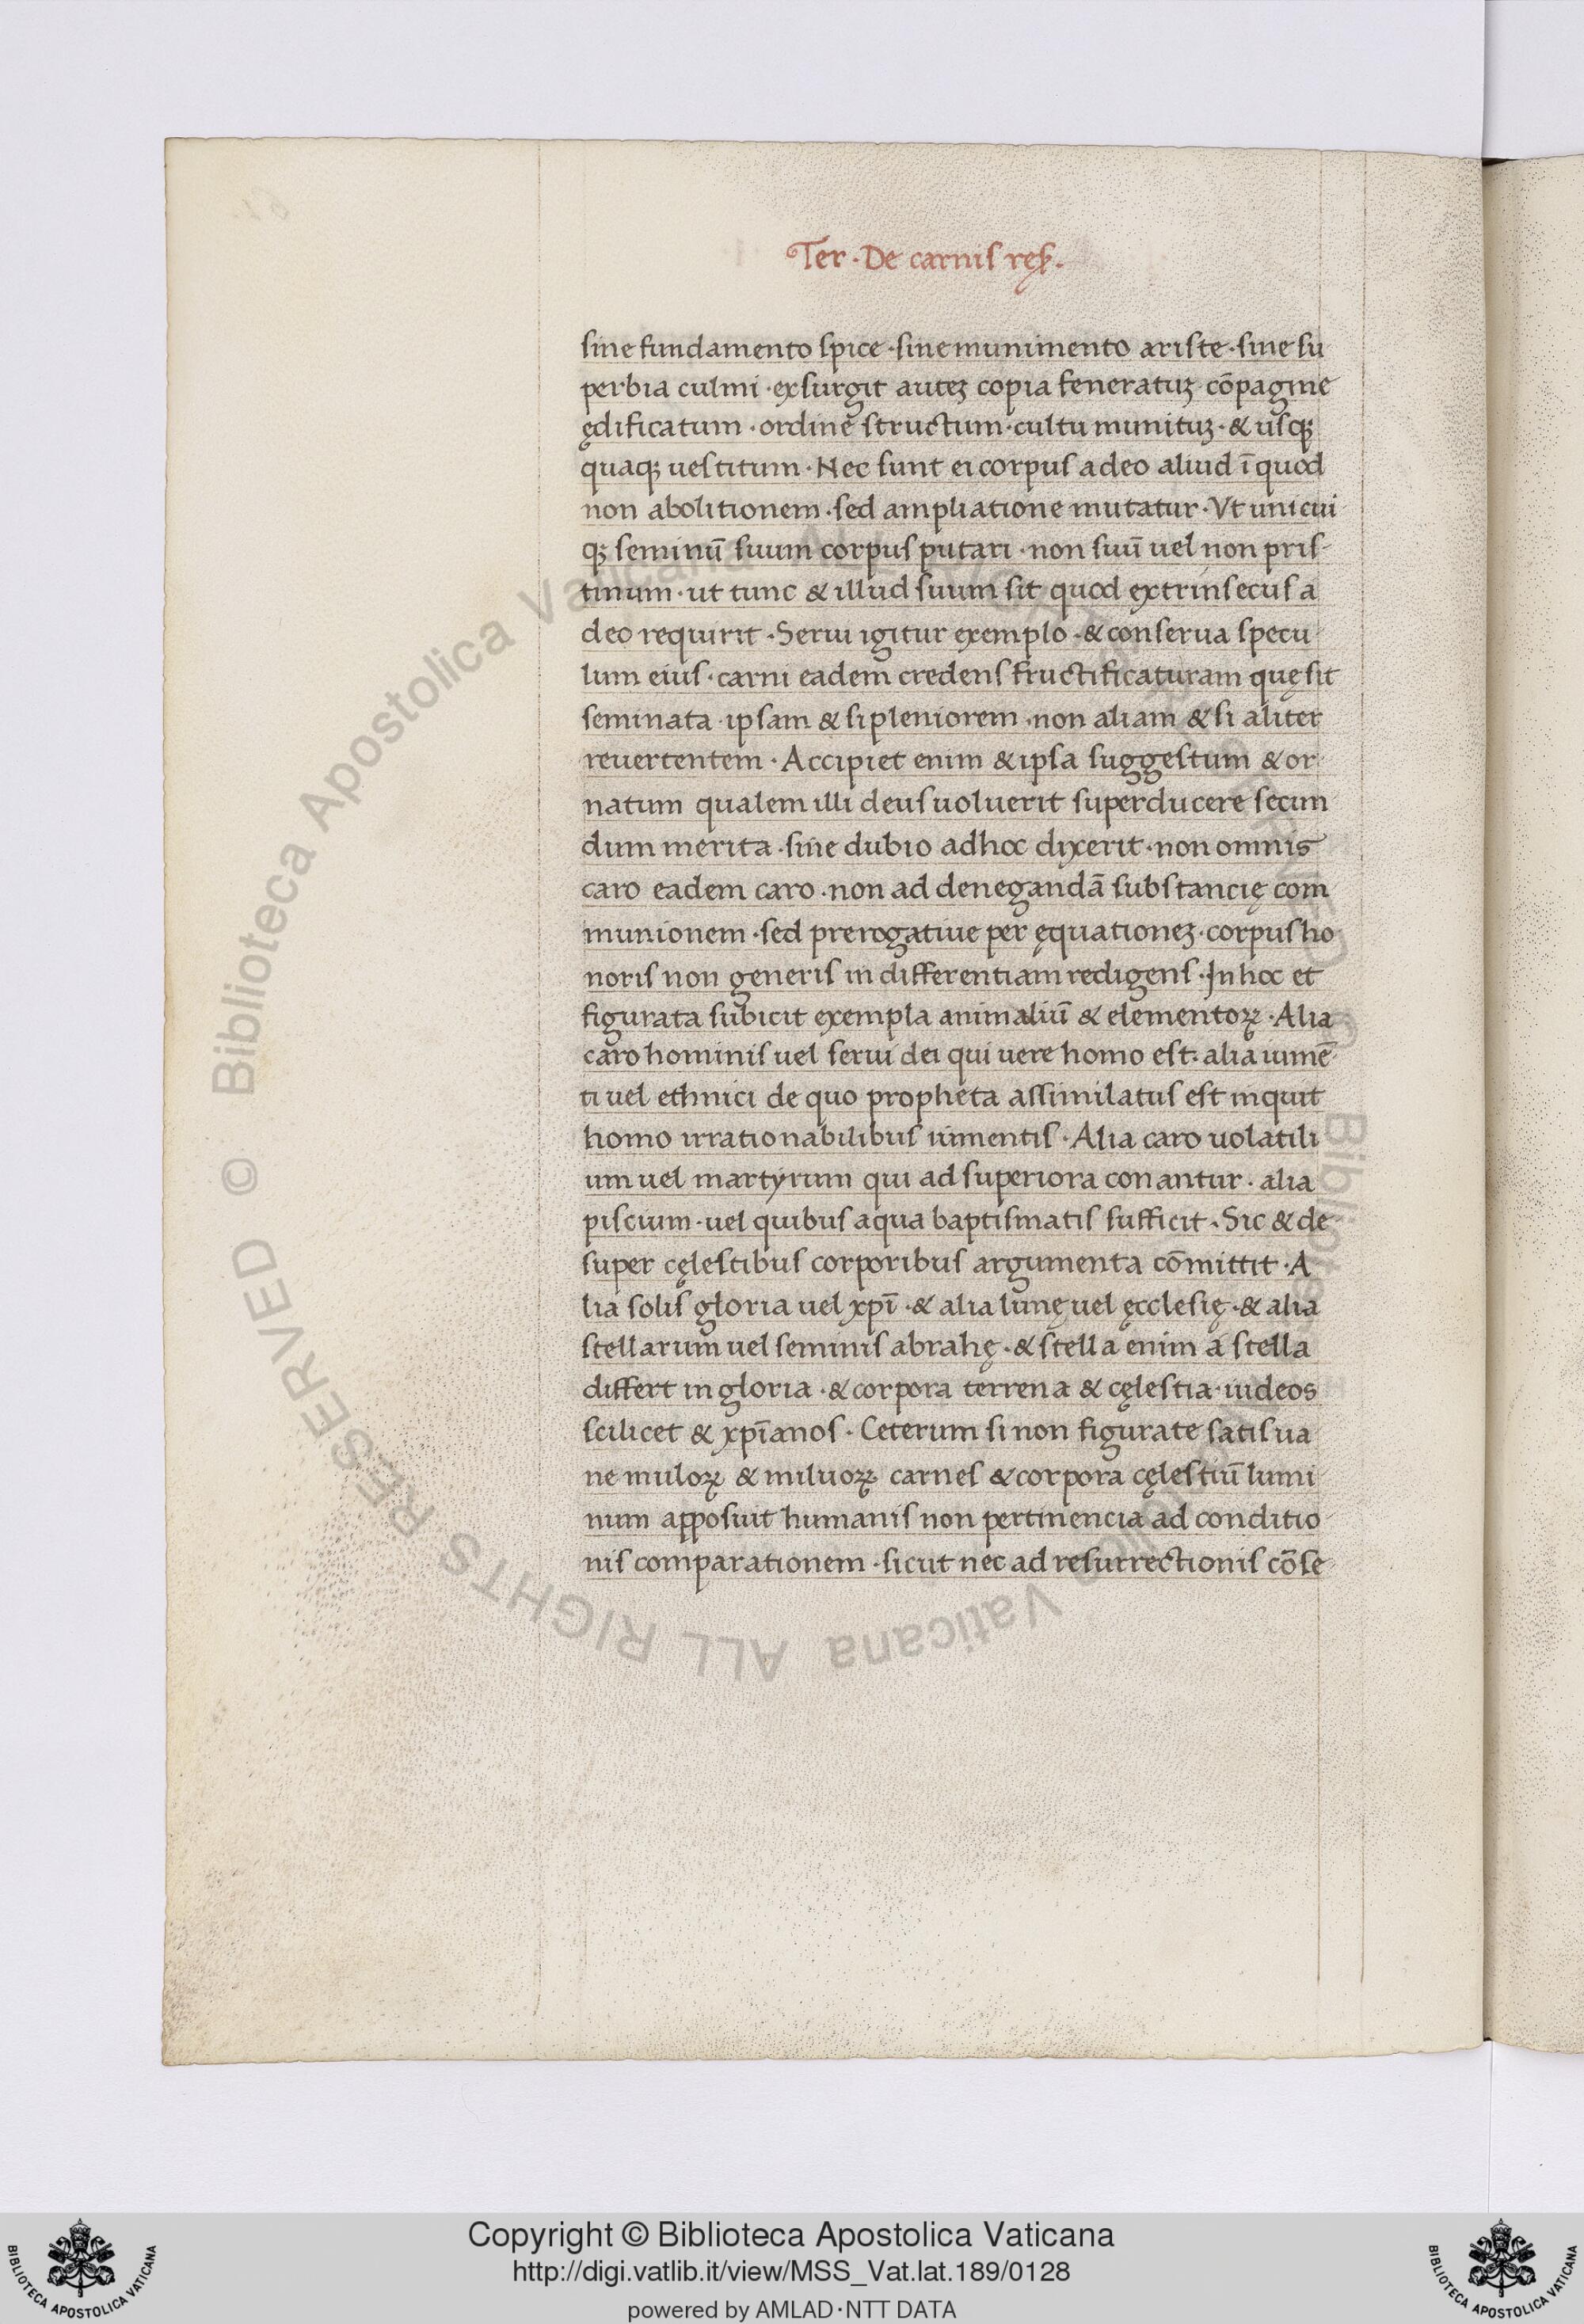 Ter · De carnis reſ.
sine fundamento spice · sine munimento ariste · sine su
perbia culmi · exsurgit auteꝫ copia feneratuꝫ cōpagine
ędificatum · ordine structum · cultu munituꝫ · & usqꝫ
quaqꝫ uestitum · Nec sunt ei corpus a deo aliud ī quod
non abolitionem · sed ampliatione mutatur · Vt unicui
qꝫ seminū suum corpus putari · non suū uel non pris
tinum · ut tunc & illud suum sit quod extrinsecus a
deo requirit · Serui igitur exemplo · & conserua specu
lum eius · carni eadem credens fructificaturam quę sit
seminata · ipsam & si pleniorem · non aliam & si aliter
reuertentem · Accipiet enim & ipsa suggestum & or
natum qualem illi deus uoluerit superducere secun
dum merita · sine dubio ad hoc dixerit · non omnis
caro eadem caro · non ad denegandā substancię com
munionem · sed prerogatiue per ęquationeꝫ · corpus ho
noris non generis in differentiam redigens · In hoc et
figurata subicit exempla animaliū & elementoꝝ · Alia
caro hominis uel serui dei qui uere homo est: alia iumē
ti uel ethnici de quo propheta assimilatus est inquit
homo irrationabilibus iumentis · Alia caro uolatili
um uel martyrum qui ad superiora conantur · alia
piscium · uel quibus aqua baptismatis sufficit · Sic & de
super cęlestibus corporibus argumenta cōmittit · A
lia solis gloria uel xpī · & alia lunę uel ęcclesię · & alia
stellarum uel seminis abrahę · & stella enim a stella
differt in gloria · & corpora terrena & cęlestia · iudeos
scilicet & xpīanos · Ceterum si non figurate satis ua
ne muloꝝ & miluoꝝ carnes & corpora cęlestiū lumi
num apposuit humanis non pertinencia ad conditio
nis comparationem · sicut nec ad resurrectionis cōse
© Biblioteca Apostolica Vaticana ALL RIGHTS RESERVED © Biblioteca Apostolica Vaticana ALL RIGHTS RESERVED
Copyright © Biblioteca Apostolica Vaticana
http://digi.vatlib.it/view/MSS_Vat.lat.189/0128
powered by AMLAD·NTT DATA
BIBLIOTECA APOSTOLICA VATICANA
BIBLIOTECA APOSTOLICA VATICANA